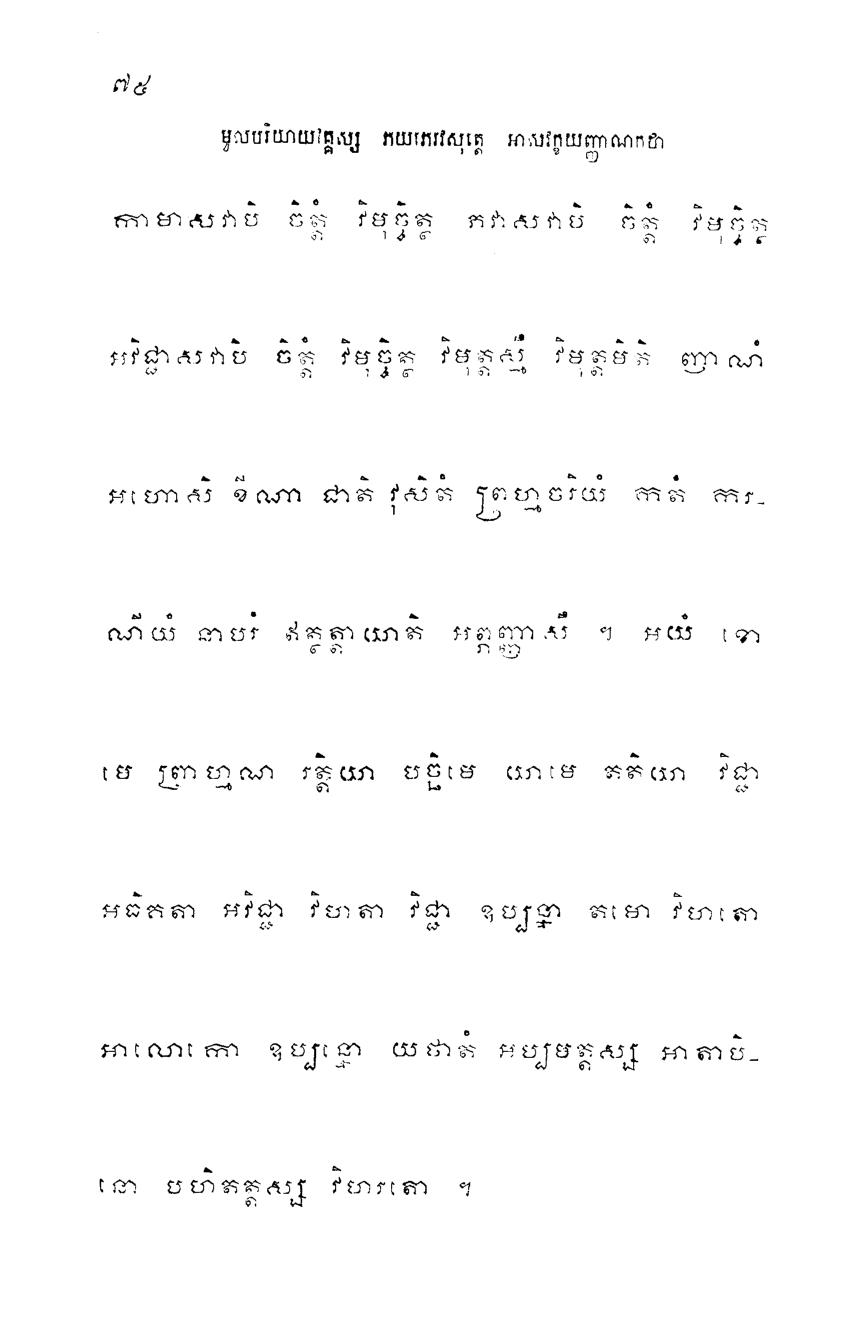 ៧៥
មូលបរិយាយវគ្គស្ស ភយភេរវសុត្តេ អាសវក្ខយញ្ញាណកថា
កាមាសវាបិ ចិត្តំ វិមុច្ចិត្ថ ភវាសវាបិ ចិត្តំ វិមុច្ចិត្ថ
អវិជ្ជាសវាបិ ចិត្តំ វិមុច្ចិត្ថ វិមុត្តស្មឹ វិមុត្តមិតិ ញាណំ
អហោសិ ខីណា ជាតិ វុសិតំ ព្រហ្មចរិយំ កតំ ករ-
ណីយំ នាបរំ ឥត្ថត្តាយាតិ អព្ភញ្ញាសឹ ។ អយំ ខោ
មេ ព្រាហ្មណ រត្តិយា បច្ឆិមេ យាមេ តតិយា វិជ្ជា
អធិគតា អវិជ្ជា វិហតា វិជ្ជា ឧប្បន្នា តមោ វិហតោ
អាលោកោ ឧប្បន្នោ យថាតំ អប្បមត្តស្ស អាតាបិ-
នោ បហិតត្តស្ស វិហរតោ ។